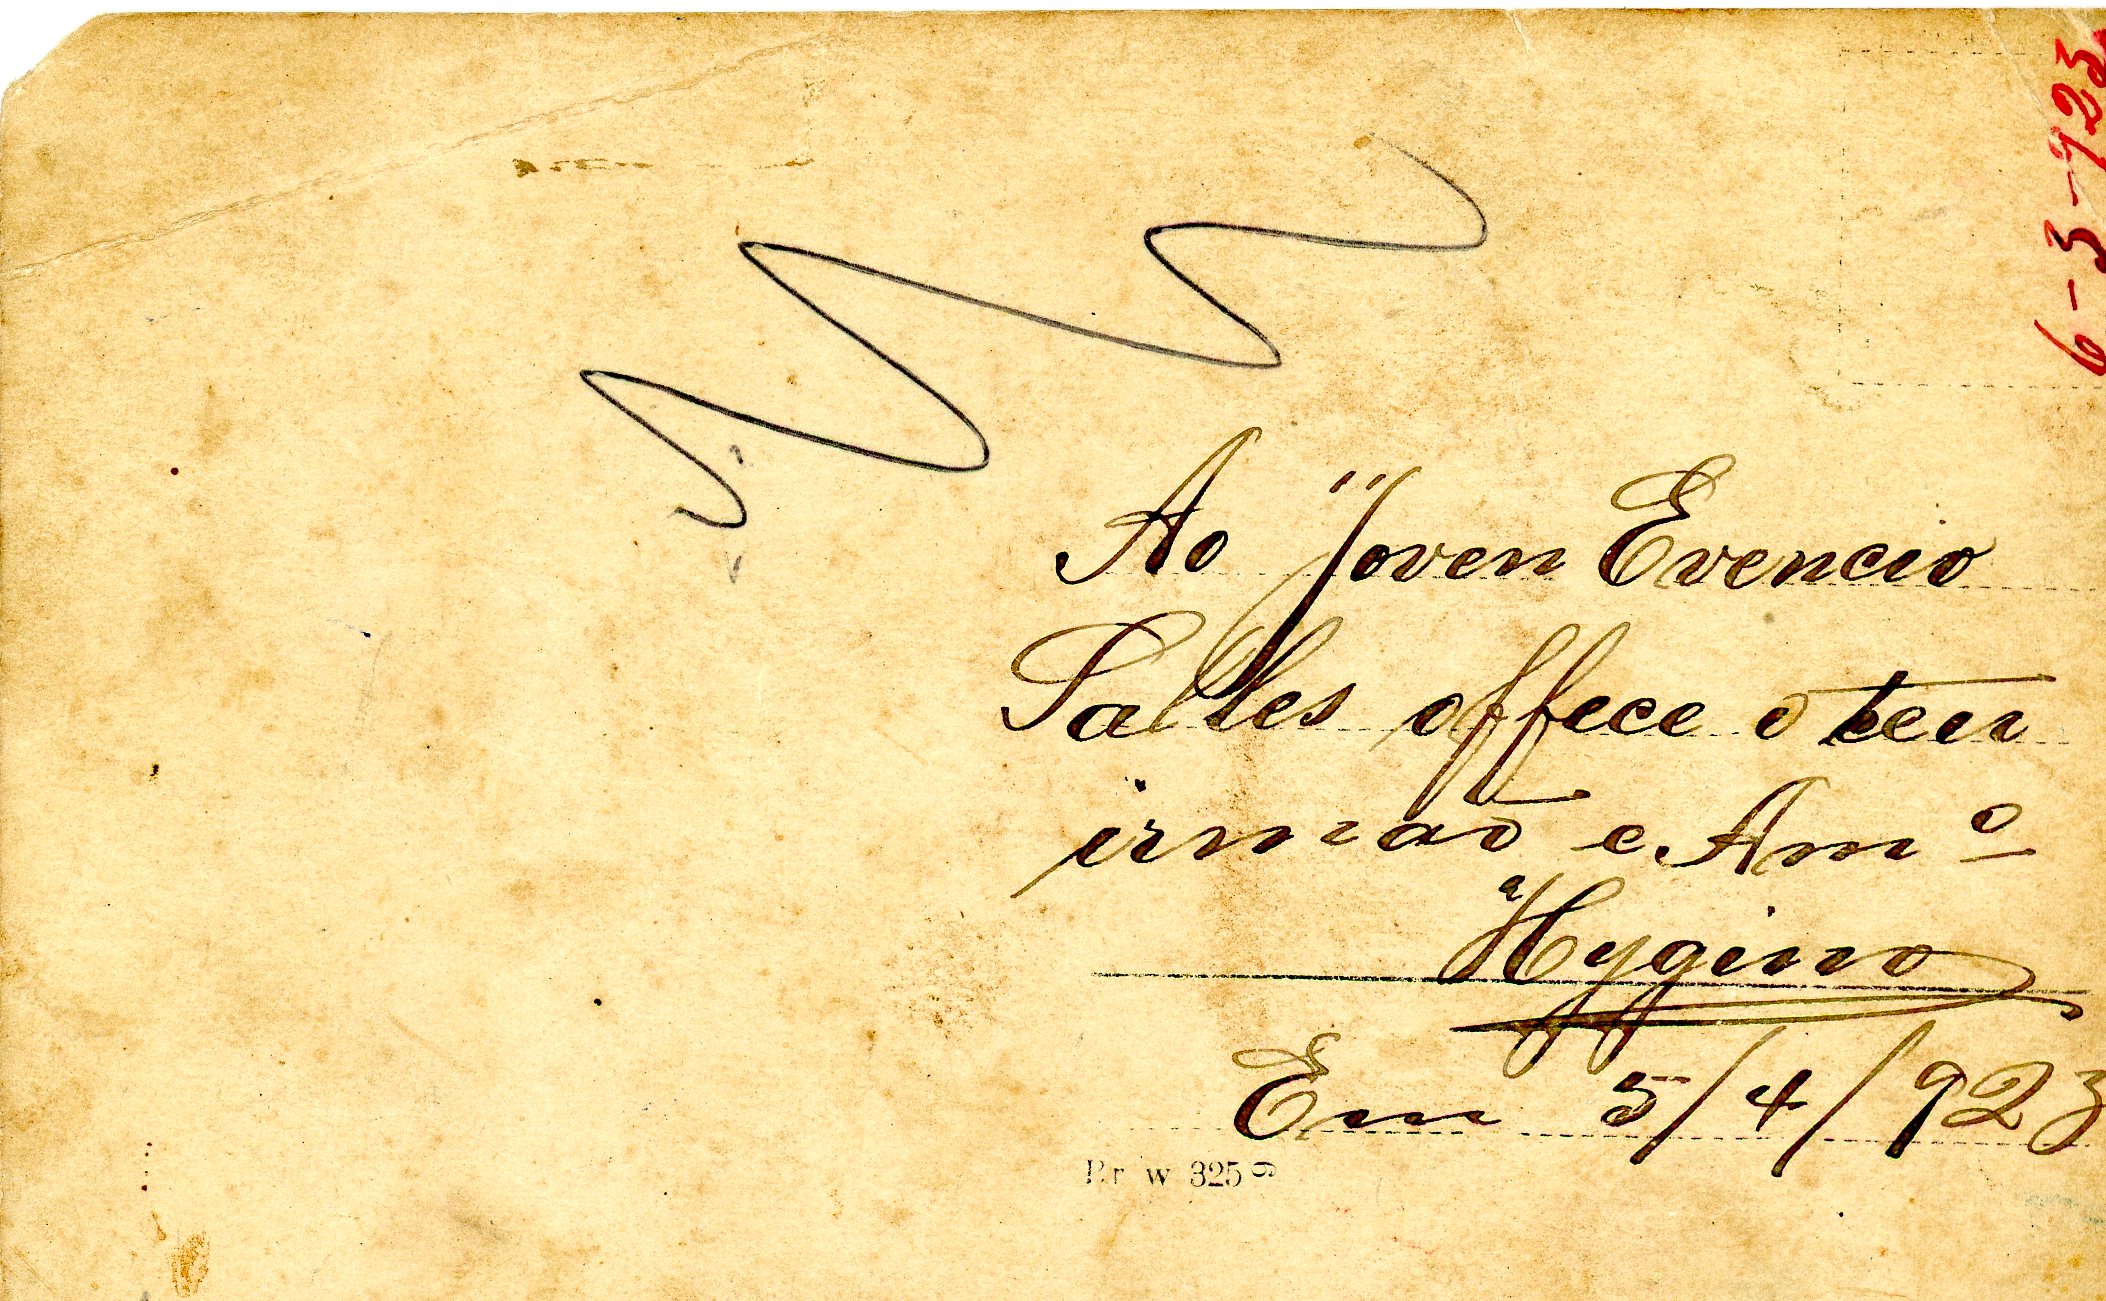 6-3-923
Ao Joven Evencio
Salles offece o teu
irmão e Amº
Hygino
Em 5/4/923
325